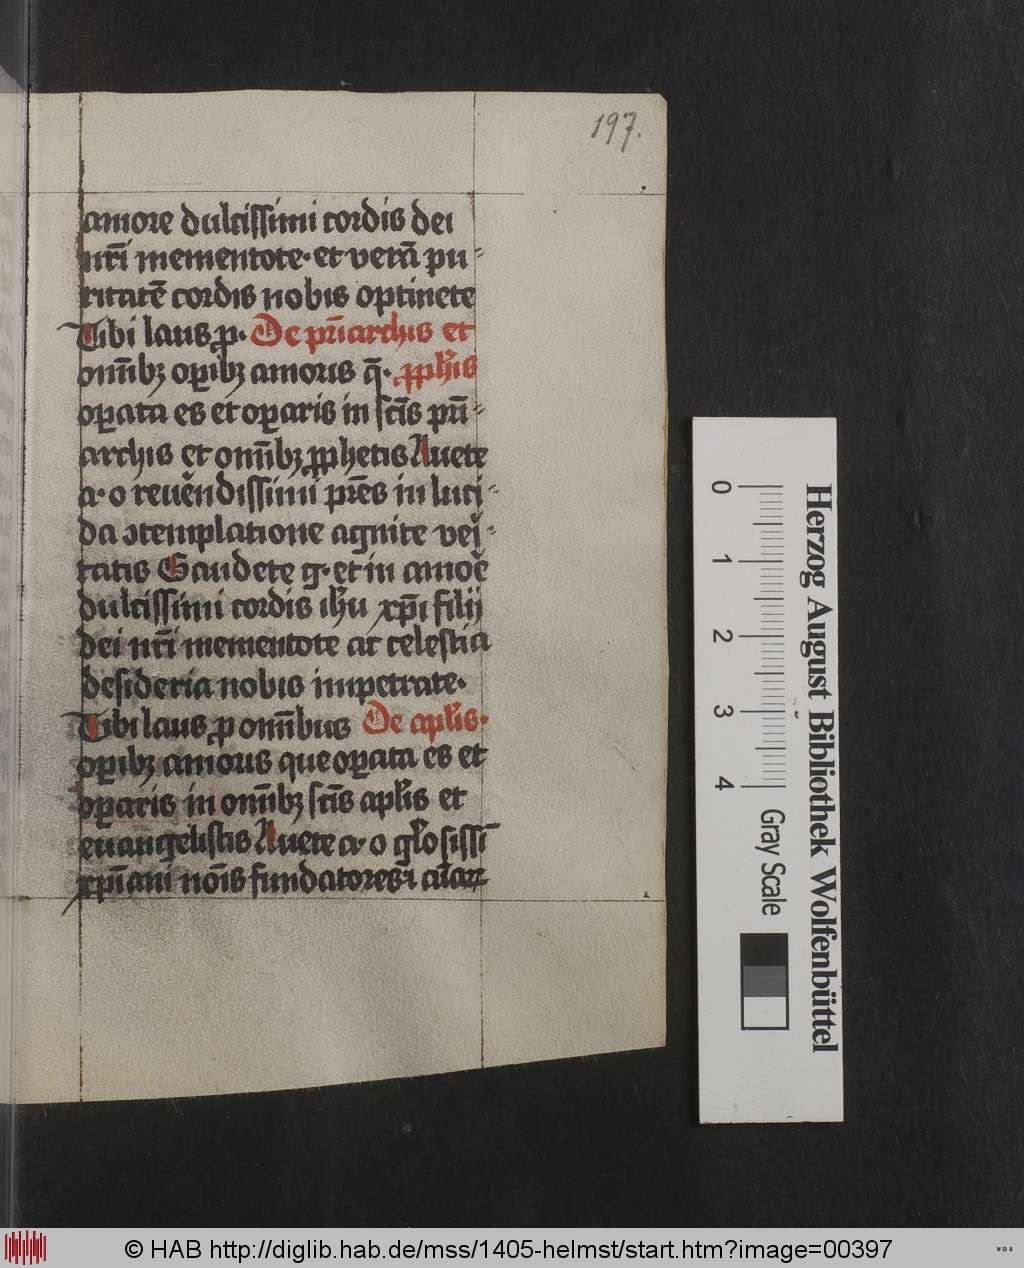 197.
amore dulcissimi cordis dei
nr̄i mementote· et verā pu-
ritatē cordis nobis optinete
Tibi laus ꝓ· De pr̄iarchis et
om̄ībꝫ oꝑibꝫ amoris q̄· ꝓphīs
oꝑata es et oꝑaris in sc̄īs pr̄i-
archis et om̄ībꝫ ꝓphetis Auete
a· o reuēndissimi pr̄es in luci-
da ɔtemplatione agnite vei-
tatis Gaudete g· et in amoē
dulcissimi cordis ih̄u xp̄i filij
dei nr̄i mementote ac celestia
desideria nobis impetrate·
Tibi laus ꝓ om̄ībus De apl̄is·
oꝑibꝫ amoris que oꝑata es et
oꝑaris in om̄ībꝫ sc̄īs apl̄is et
euangelistis Auete a· o gl̄osissī
xp̄iani nōīs fundatores ⁊
0
1
2
3
4
Gray Scale
Herzog August Bibliothek Wolfenbüttel
© HAB http://diglib.hab.de/mss/1405-helmst/start.htm?image=00397